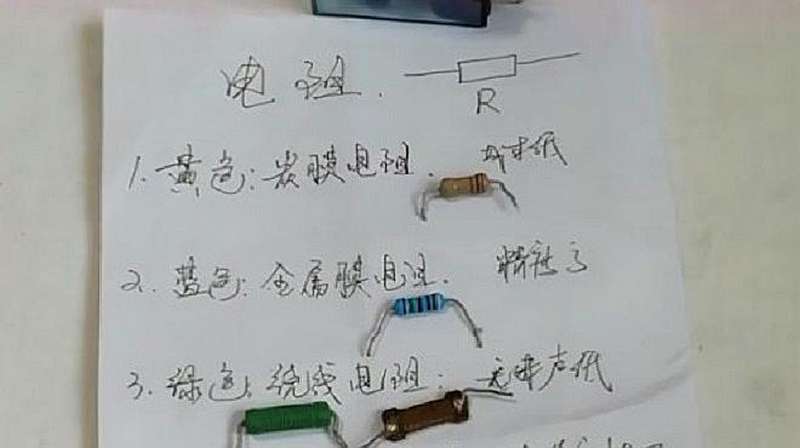 电阻.
R
1. 黄色: 炭膜电阻. 成本低
2. 蓝色: 金属膜电阻. 精密高
3. 绿色: 绕线电阻: 无噪声低